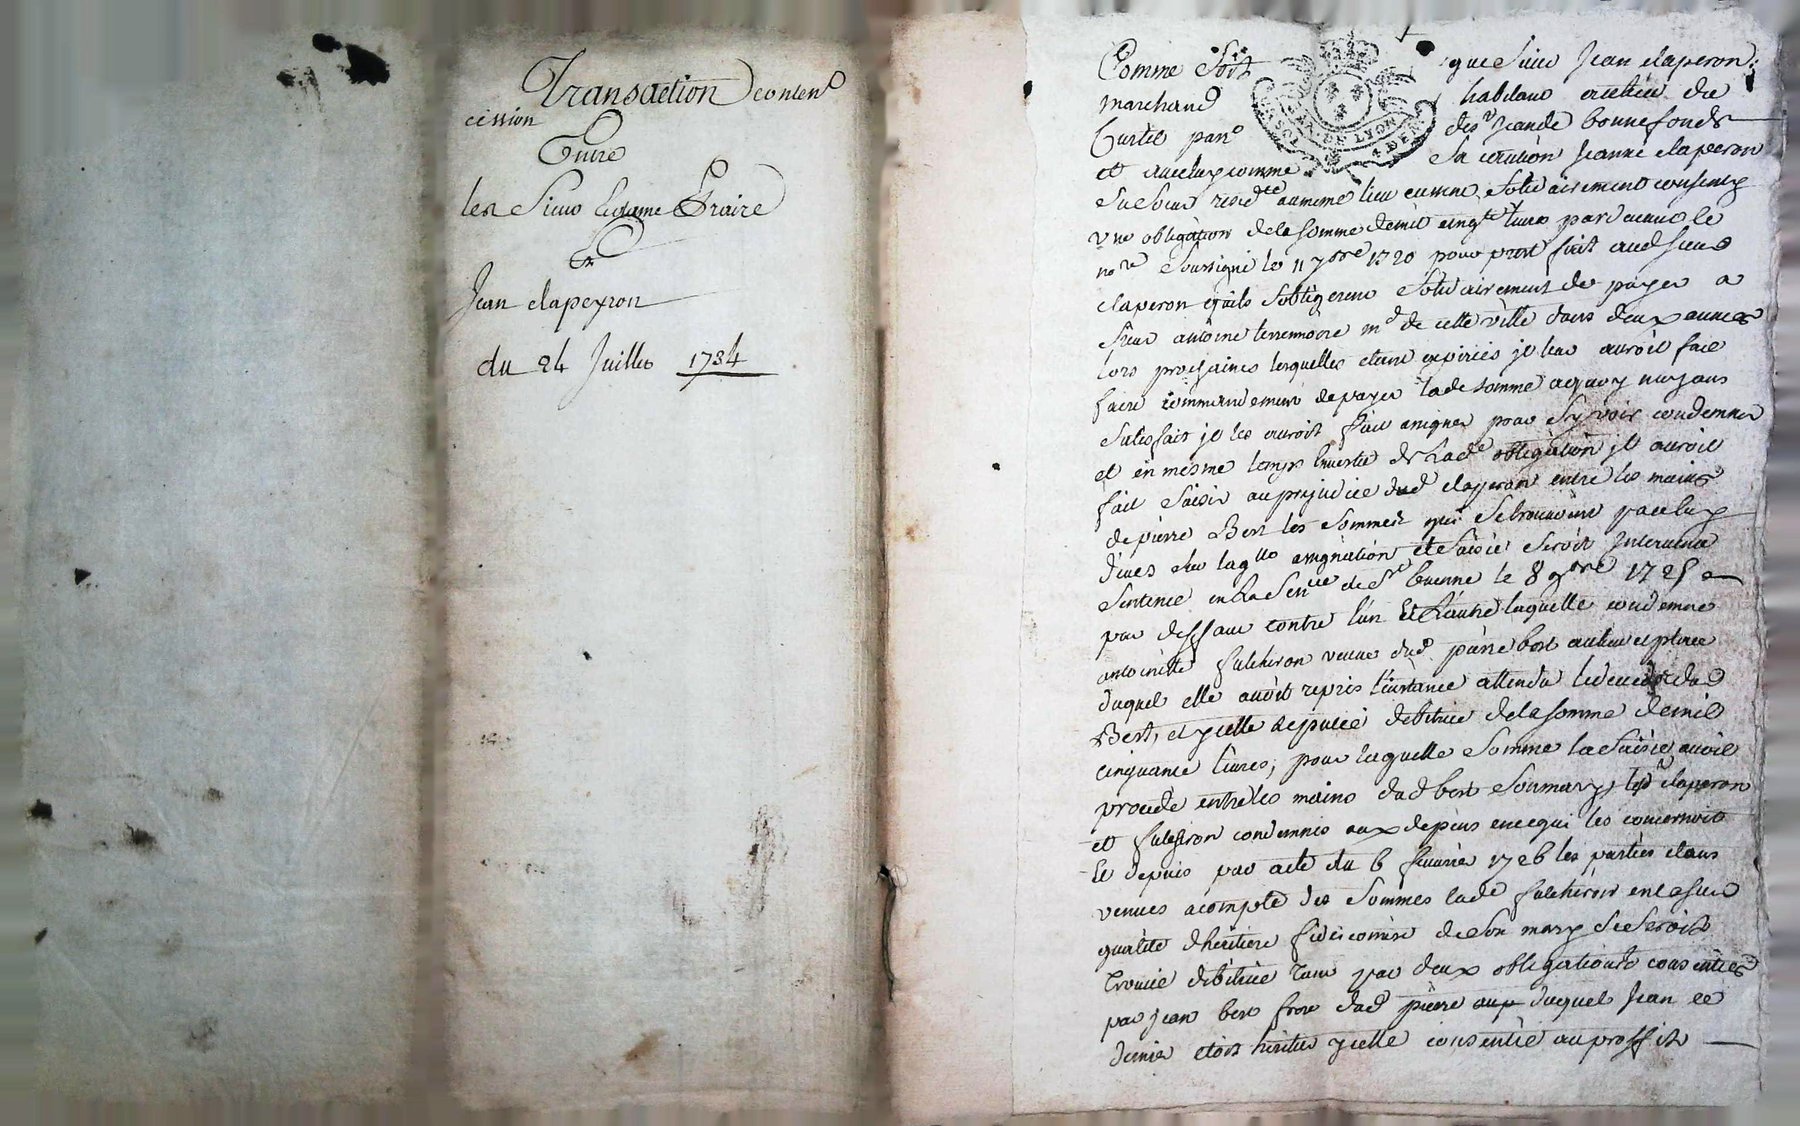 Transaction conten^t
cission
Entre
les Sieurs Graire
Et
Jean clapeyron
du 24 Juillet 1734
Comme Soit que Sieur Jean claperon
marchand habitant du
bonnefonds
et comme Sa caution Jeanne claperon
Sa Soeur resid^te au meme lieu eussent Solidairement consenty
vne obligation de la Somme de mil cinq^te liures par deuant le
no^re Soussigné le 11 7bre 1720 pour prest fait aud Sieur
claperon quils Sobligerent Solidairement de payer a
Sieur antoine terremoire m^d de cette ville dans deux années
lors prochaines lesquelles etant expiriés jl leur auroit fait
faire commandement de payer lade Somme aquoy nayans
Satisfait jl les auroit fait assigner pour Sy voir condemner
et en mesme temps En vertu de lad^e obligation jl auroit
fait Saisir au prejudice dud claperon entre les mains
de pierre Bert les Sommes qui Se trouueroient par luy
dües Sur laq^lle assignation et Saisie Seroit Interuenue
Sentence en la Sen^cée de S^t Etienne le 8 9bre 1725
par deffaut contre l'un Et l'autre laquelle condemne
antoinette fulchiron veuve dud pierre bert au lieu et place
duquel elle auoit repris l'instance attendu le deces dud
Bert, et ycelle reputée debitrice de la Somme de mil
cinquante liures, pour laquelle Somme la Saisie auoit
procedé entre les mains dud bert Son mary, led^t claperon
et fulchiron condemnés aux depens en ce qui les concernoit
Et depuis par acte du 6 feurier 1726 les parties étans
venues a compte des Sommes lade fulchiron en la Sude
qualité d'héritiere fideicomise de Son mary Se Seroit
trouuée débitrice tant par deux obligations consenties
par Jean bert frere dud pierre duquel Jean ce
dernier etoit héritier ycelle consentie au proffit